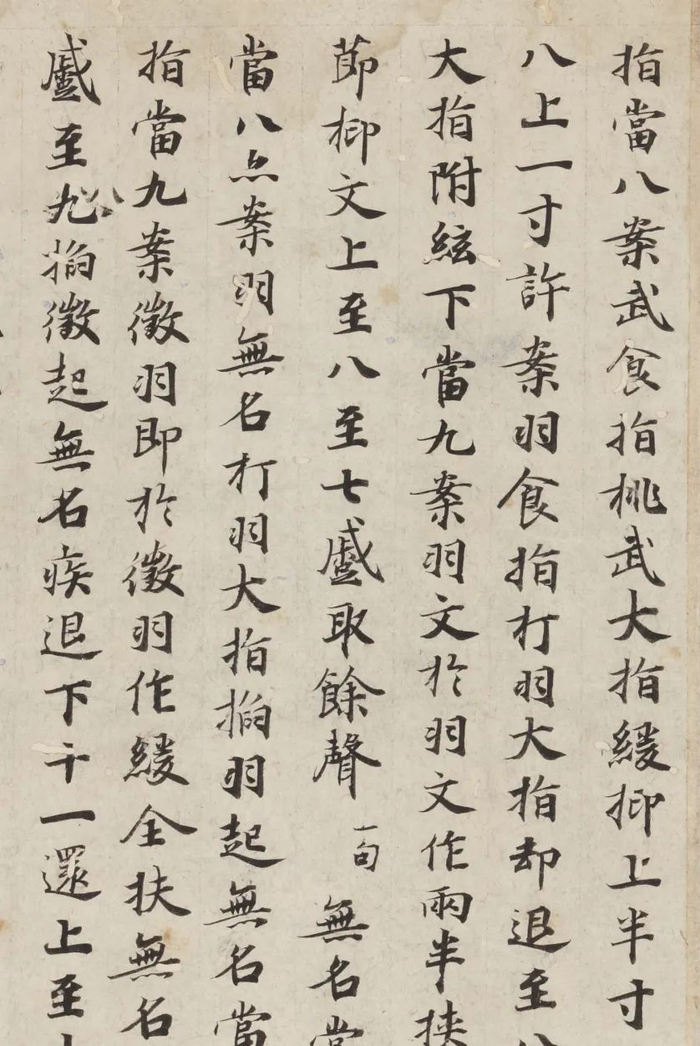 指當八案武食指桃武大指緩抑上半寸
八上一寸許案羽食指打羽大指却退至
大指附絃下當九案羽文於羽文作兩半挾
莭抑文上至八至七蹙取餘聲一句無名當
當八亦案羽無名打羽大指掐羽起無名當
指當九案徵羽即於徵羽作緩全扶無名
蹙至九八掐徵起無名疾退下十一還上至